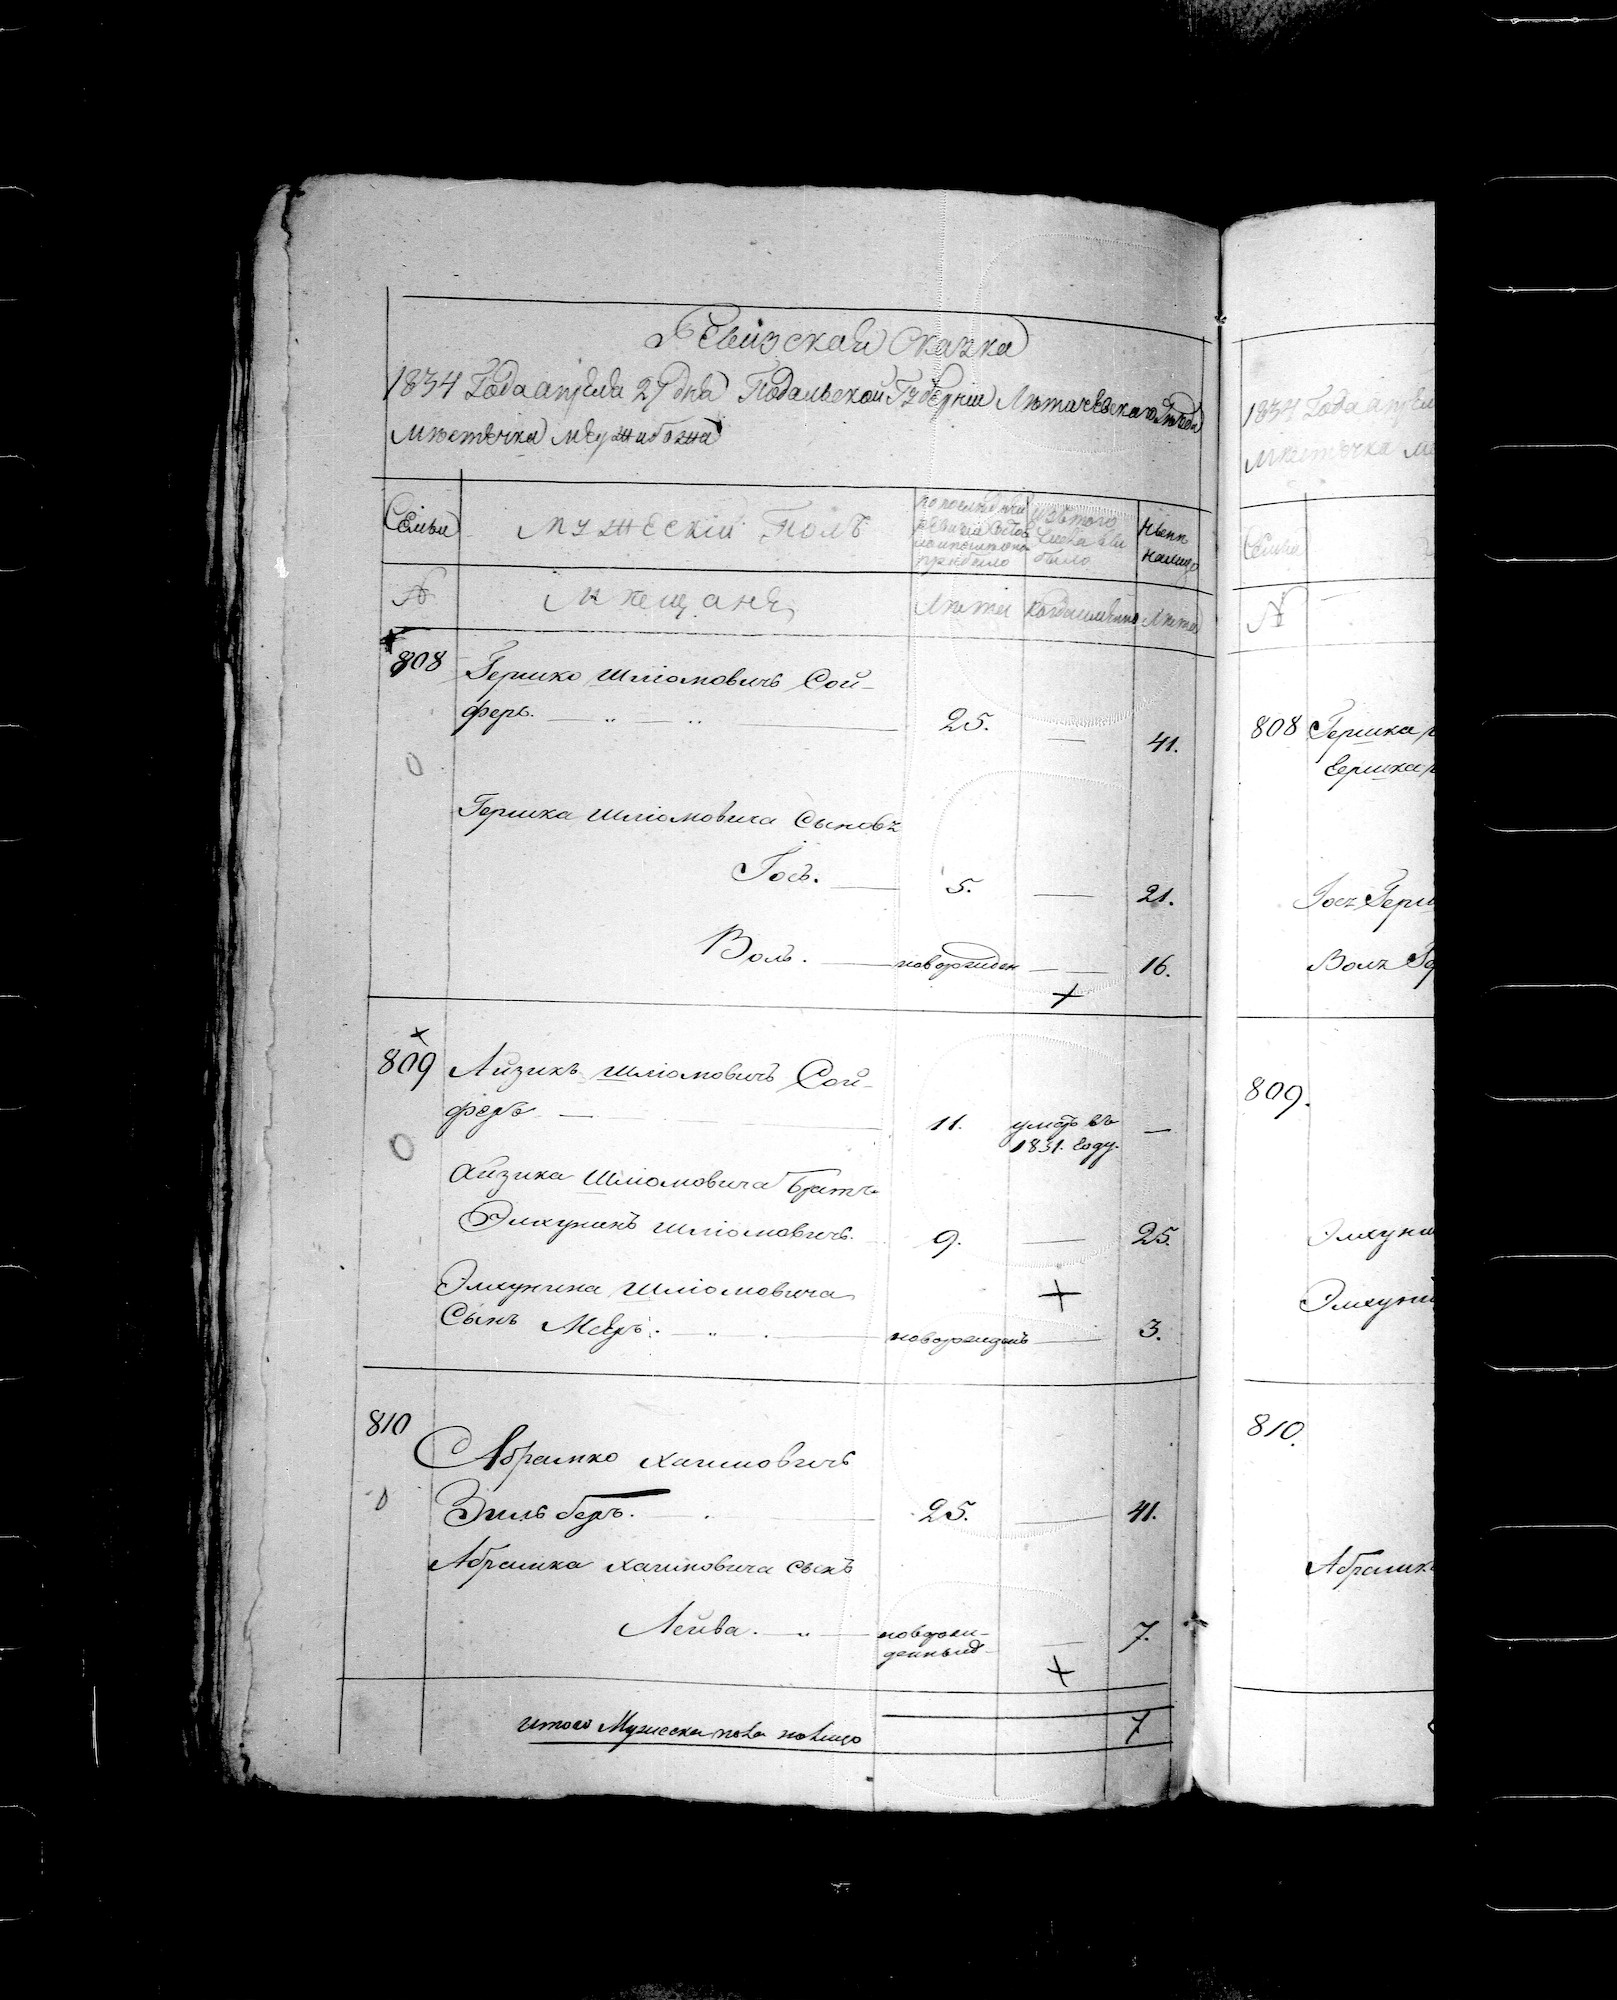 Ревизская сказка
1834 Года апреля 27 дня Подольской Губернии Лѣтичевскаго Уѣзда
мѣстечка Меужибожа
Семьи
мужескій Полъ
по последней ревизіи состояло и после оной прибыло
Изъ того числа выбыло
Нынѣ налицо
№
мѣщане
Лѣта
Когда именно
Лѣта
808 Гершко Шліомовичъ Сой-
феръ. 25. — 41.
Гершка Шліомовича Сыновъ
Іосъ. 5. — 21.
Воль. новорожден — 16.
809 Айзикъ Шліомовичъ Сой-
феръ — 11. умеръ въ —
1831. году.
Айзика Шліомовича братъ
Элхунинъ Шліомовичъ. 9. — 25.
Элхунина Шліомовича
Сынъ Мееръ. новорожденъ — 3.
810
Абрамко Хаимовичъ
Зильберъ. 25. — 41.
Абрамка Хаимовича сынъ
Лейва. — новорож- — 7.
денный
итого Мужеска пола налицо 7
1834 Года апрел
мѣстечка Ме
Семьи
№
808 Гершка
Гершка
Іосъ Герш
Волъ Ге
809.
Элхуни
Элхуни
810.
Абрамк